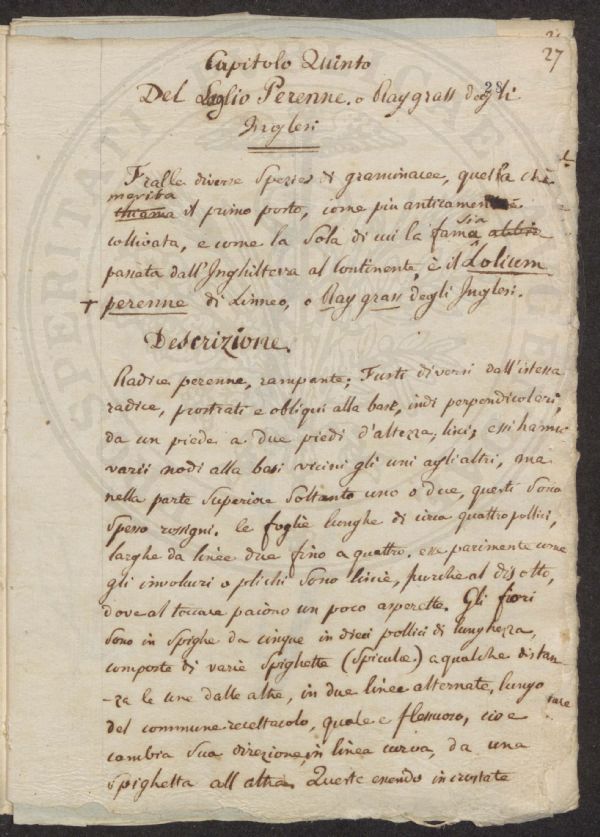 27
28
Capitolo Quinto
Del Loglio Perenne. o Raygrass degli
Inglesi
Fralle diverse Spezies di graminacee, quella che
merita
il primo posto, come più anticamente
sia
coltivata, e come la Sola di cui la fama abbia
passata dall'Inghilterra al Continente, è il Lolium
+ perenne di Linneo, o Ray grass degli Inglesi.
Descrizione.
Radice perenne, rampante; Fusti diversi dall'istessa
radice, prostrati e obliqui alla base, indi perpendicolari,
da un piede a due piedi d'altezza, lisci, essi hanno
varii nodi alla basi vicini gli uni agli altri, ma
nella parte Superiore Soltanto uno o due, questi Sono
Spesso rossigni. le foglie lunghe di circa quattro pollici,
larghe da linee due fino a quattro. esse parimente come
gli involucri o plichi Sono liscie, purche al disotto,
dove al toccare paiono un poco asperette. Gli fiori
Sono in Spighe da cinque in dieci pollici di lunghezza,
composte di varie Spighette (Spiculæ) a qualche distan
-za le une dalle altre, in due linee alternate, lungo
del commune recettacolo, quale e flessuoso, cioe
cambia Sua direzione, in linea curva, da una
Spighetta all'altra. Queste essendo incrustate